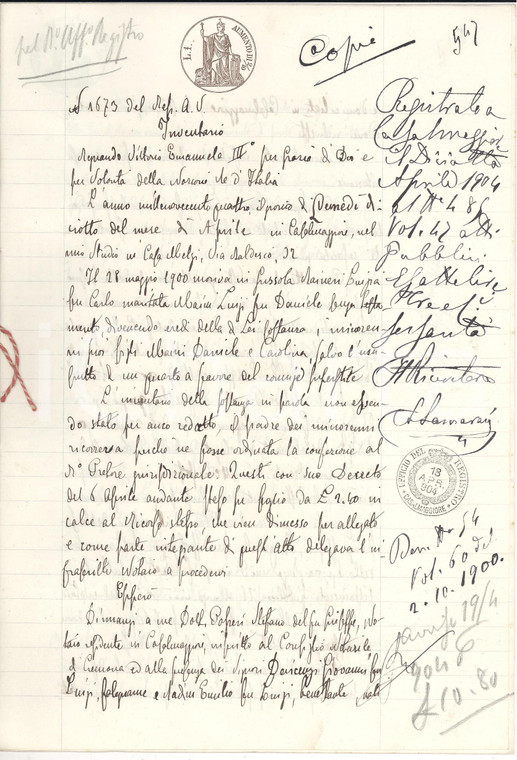 pel R.° Uff.° Registro
Copia
L. 1.
AUMENTO
N 1673 del Rep. A. V.
Inventario
Regnando Vittorio Emanuele III° per grazia di Dio e
per Volontà della Nazione Re d'Italia
L'anno millenovecentoquattro, il giorno di Lunedì di
ciotto del mese di Aprile in Casalmaggiore, nel
mio Studio in Casa Melzi, Via Baldesio, 32
Il 28 maggio 1900 moriva in Gussola
fu Carlo maritata Luigi fu Daniele
mento, divenendo eredi della di Lei sostanza, i minoren
ni suoi figli Daniele e Carolina, salvo l'usu-
frutto di un quarto a favore del coniuge superstite
L'inventario della sostanza in parola non essen
do stato per anco redatto il padre dei minorenni
ricorreva perchè ne fosse ordinata la confezione al
R° Pretore giurisdizionale. Questi con suo Decreto
del 6 Aprile andante steso su foglio da L 2.60 in
calce al Ricorso stesso che viene dimesso per allegato
e come parte integrante di quest'atto delegava l'in
frascritto Notaio a procedervi
Epperò
Dinnanzi a me Dott. Stefano del fu Giuseppe, No
taio residente in Casalmaggiore, inscritto al Consiglio Notarile
di Cremona ed alla presenza dei Signori Giovanni fu
Luigi, falegname e Emilio fu Luigi, benestante
Registrato a
Casalmaggiore
il Diciotto
Aprile 1904
al N° 486
Vol. 47 atti
Pubblici
Esatte lire
Tre e C.i
sessanta
Il Ricevitore
UFFICIO DEL REGISTRO
18
APR.
904
CASALMAGGIORE
N° 54
Vol. 60 del
2.10.1900.
19/4
904
£ 10.80